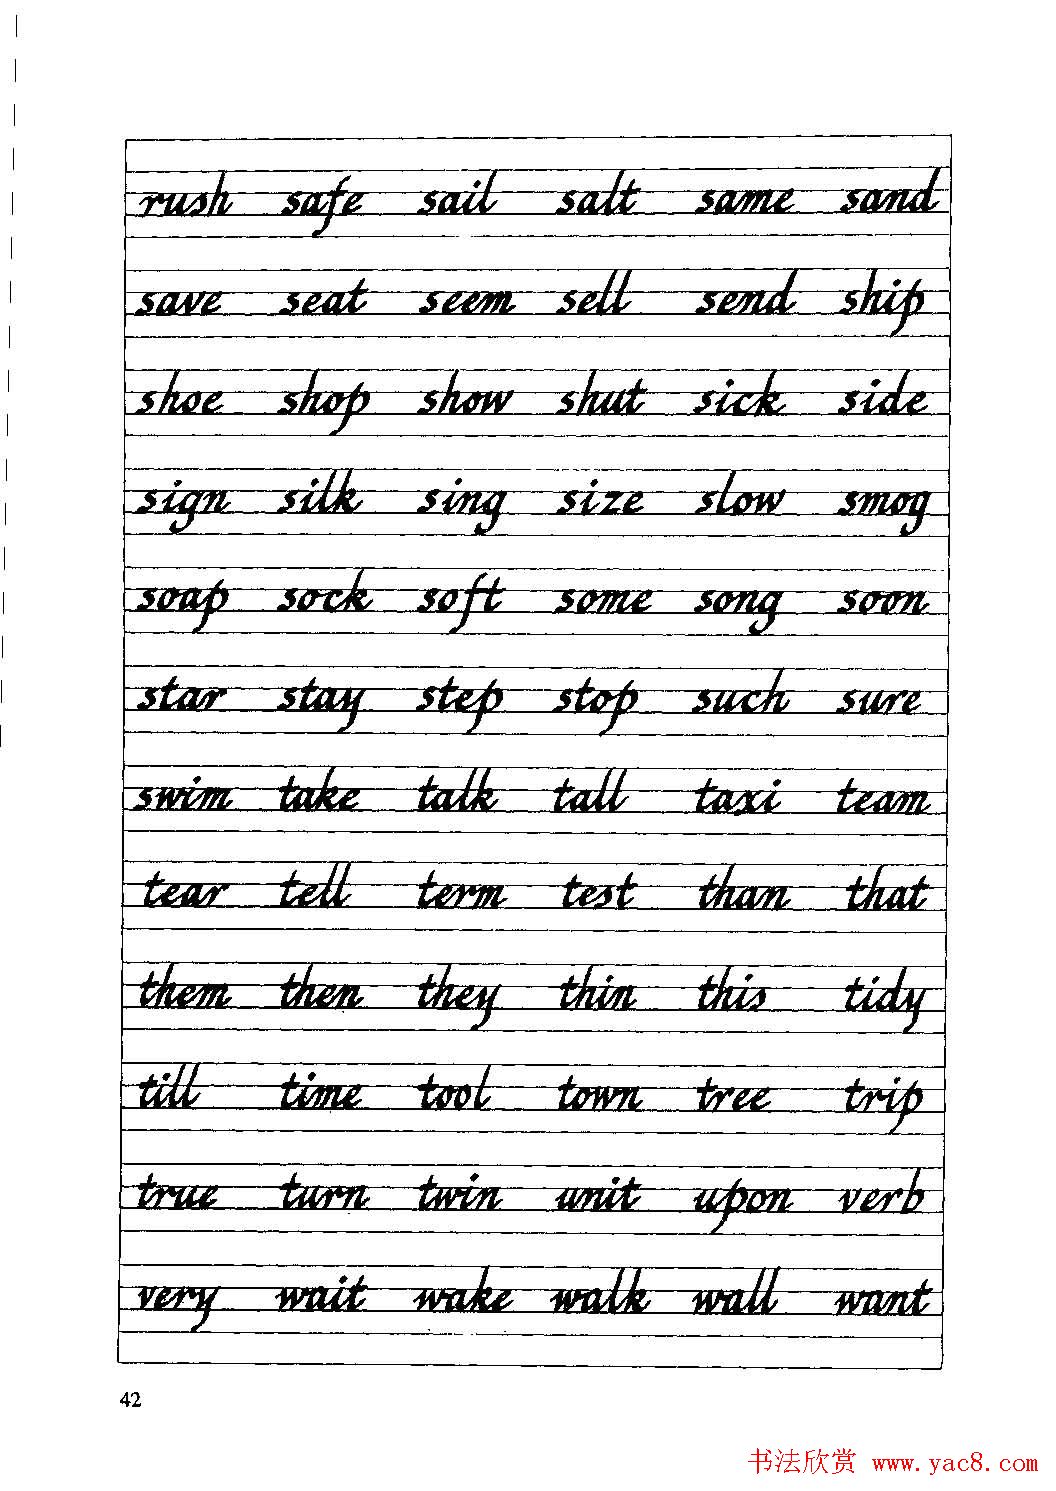 rush safe sail salt same sand
save seat seem sell send ship
shoe shop show shut sick side
sign silk sing size slow smog
soap sock soft some song soon
star stay step stop such sure
swim take talk tall taxi team
tear tell term test than that
them then they thin this tidy
till time tool town tree trip
true turn twin unit upon verb
very wait wake walk wall want
42
书法欣赏 www.yac8.com